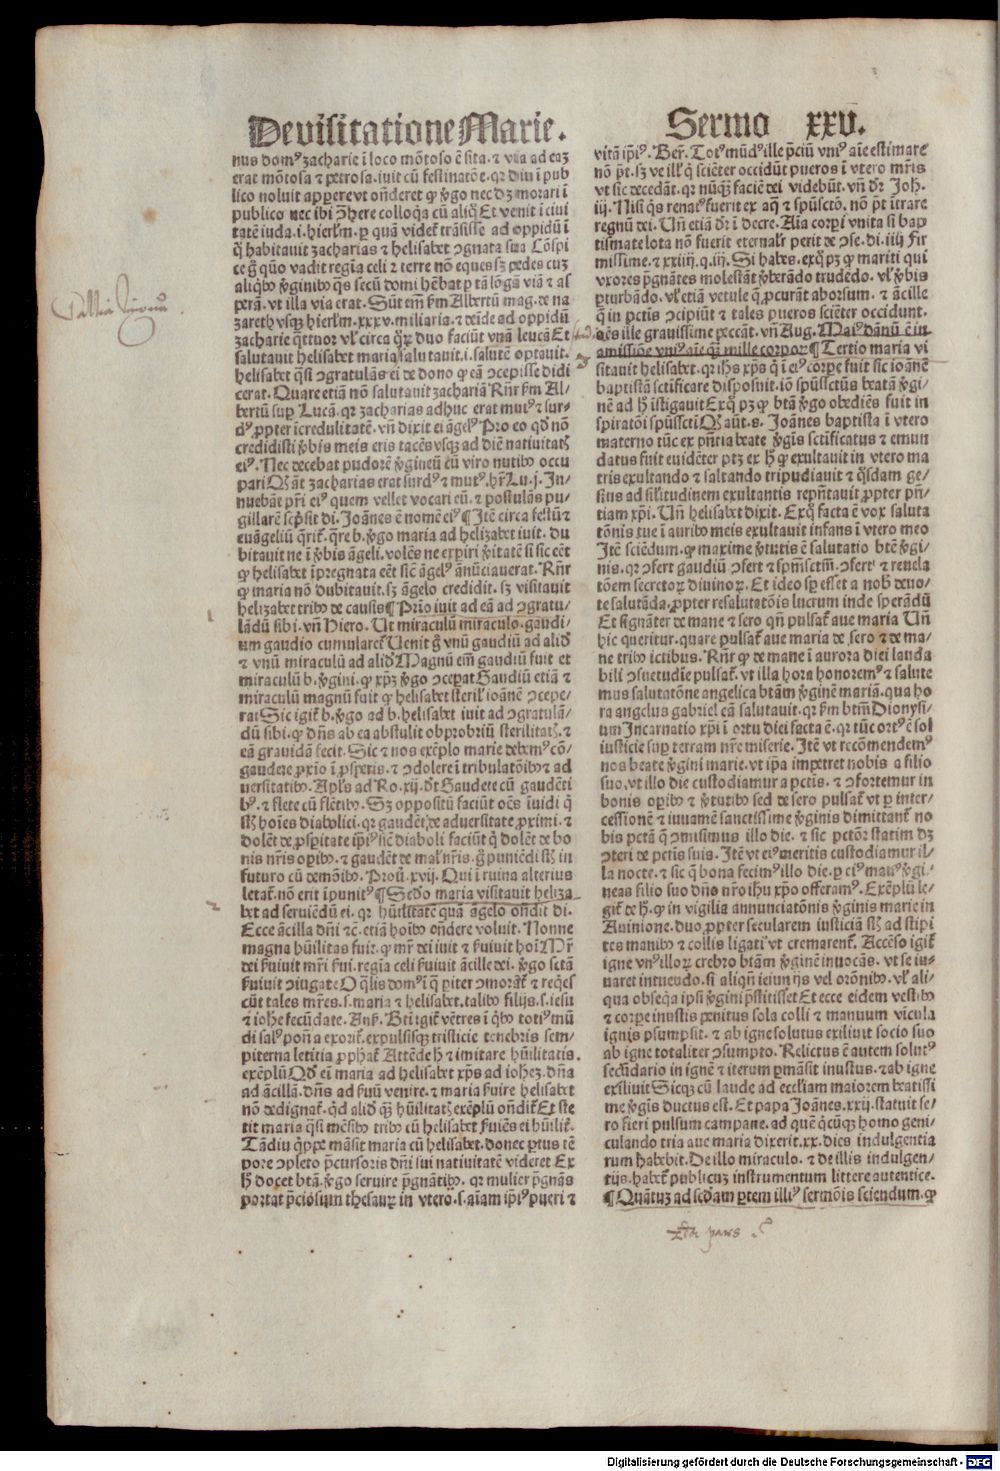 De visitatione Marie.
nus domꝰ zacharie ī loco mōtoso ē sita. ⁊ via ad eaꝫ
erat mōtosa ⁊ petrosa. iuit cū festinatōe. qꝛ diu ī pub
lico noluit apperere vt oñderet ꝙ ꝟgo nec dꝫ morari ī
publico nec ibi ꝓhere colloq̄a cū aliq̄ Et venit ī ciui
tatē iuda. i. hierl'm. ꝑ quā videt᷑ trāsisse ad oppidū ī
q̄ habitauit zacharias ⁊ helisabet ꝯgnata sua Cōspi
ce g̊ quō vadit regia celi ⁊ terre nō eques sꝫ pedes cuꝫ
aliq̄bꝰ ꝟginibꝰ q̄s secū domi hēbat ꝑ tā lōgā viā ⁊ as
perā. vt illa via erat. Sūt em̄ km Albertū mag. de na
zareth vsqꝫ hierl'm. xxxv. miliaria. ⁊ deīde ad oppidū
zacharie q̄ttuor vl' circa q̄ꝝ duo faciūt vnā leucā Et
salutauit helisabet maria salutauit. i. salutē optauit.
helisabet q̄si ꝯgratulās ei de dono ꝙ eā ꝯcepisse didi
cerat. Quare etiā nō salutauit zachariā Rn̄r km Al/
bertū suꝑ Lucā. qꝛ zacharias adhuc erat mutꝰ ⁊ sur/
dꝰ ꝓpter īcredulitatē. vn̄ dixit ei āgelꝰ Pro eo qd nō
credidisti ꝟbis meis eris tacēs vsqꝫ ad diē natiuitatꝭ
eiꝰ. Nec decebat pudorē ꝟgineū cū viro nutibꝰ occu
pari Qm̄ zacharias erat surdꝰ ⁊ mutꝰ. hr̄ Lu. j. In/
nuebāt pr̄i eiꝰ quem vellet vocari eū. ⁊ postulās pu/
gillarē scp̄sit di. Joānes ē nomē eiꝰ ¶ Itē circa festū ⁊
euāgeliū q̄rit᷑. q̄re b. ꝟgo maria ad helizabet iuit. du
bitauit ne ī ꝟbis āgeli. volēs ne expiri ꝟitatē si sic eēt
ꝙ helisabet īpregnata eēt sic̄ āgelꝰ anūciauerat. Rn̄r
ꝙ maria nō dubitauit. sꝫ āgelo credidit. sꝫ visitauit
helizabet tribꝰ de causis ¶ Pr̄io iuit ad eā ad ꝯgratu/
lādū sibi. vn̄ Hiero. Ut miraculū miraculo. gaudi/
um gaudio cumularet᷑ Uenit g̊ vnū gaudiū ad aliđ
⁊ vnū miraculū ad aliđ Magnū em̄ gaudiū fuit et
miraculū b. ꝟgini. ꝙ xp̄ꝫ ꝟgo ꝯceꝑat Gaudiū etiā ⁊
miraculū magnū fuit ꝙ helisabet steril' ioānē ꝯcepe/
rat Sic igit᷑ b. ꝟgo ad b. helisabet iuit ad ꝯgratulā/
dū sibi. ꝙ dn̄s ab ea abstulit obprobriū sterilitatꝭ. ⁊
eā grauidā fecit. Sic ⁊ nos exēplo marie debemꝰ cō/
gaudere ꝓxio ī ꝓsperis. ⁊ ꝯdolere ī tribulatōibꝰ ⁊ ad
uersitatibꝰ. Apl's ad Ro. xij. dt Gaudete cū gaudēti
bꝰ. ⁊ flete cū flētibꝰ. Sꝫ oppositū faciūt oēs īuidi q̄
sꝭ hoīes diabolici. qꝛ gaudēt de aduersitate ꝓximi. ⁊
dolēt de ꝓsꝑitate ip̄iꝰ sic̄ diaboli faciūt q̄ dolēt de bo
nis nr̄is oꝑibꝰ. ⁊ gaudēt de mal' nr̄is. g̊ puniēdi sꝭ in
futuro cū demōibꝰ. Prou. xvij. Qui ī ruina alterius
letat᷑. nō erit īpunitꝰ ¶ Scđo maria visitauit heliza/
bet ad seruiēdū ei. qꝛ hūilitatē quā āgelo oñdit di.
Ecce ācilla dn̄i ⁊c̄. etiā hoībꝰ oñdere voluit. Nonne
magna hūilitas fuit. ꝙ mr̄ dei iuit ⁊ ẜuiuit hoī Mr̄
dei ẜuiuit mr̄i ẜui. regia celi ẜuiuit ācille dei. ꝟgo sctā
ẜuiuit ꝯiugate O q̄lis domꝰ ī q̄ ꝑiter ꝯmorāt᷑ ⁊ reqēs
cūt tales mr̄es. s. maria ⁊ helisabet. talibꝰ filijs. s. iesu
⁊ iohe fecūdate. Ans. Bti igit᷑ vētres ī q̄bꝰ totiꝰ mū
di salꝰ poñ a exorit᷑. expulsisqꝫ tristicie tenebris sem/
piterna letitia ꝓphat᷑ Attēde ꝭ ⁊ imitare hūilitatis.
exēplū Qđ em̄ maria ad helisabet xp̄s ad iohēꝫ. dn̄a
ad ācillā. dn̄s ad ẜuū venire. ⁊ maria ẜuire helisabet
nō dedignat᷑. qd aliđ q̄ꝫ hūilitatꝭ exēplū oñdit᷑ Et ste
tit maria q̄si mēsibꝰ tribꝰ cū helisabet ẜuiēs ei hūilit᷑.
Tādiu q̄ppe māsit maria cū helisabet. donec ꝑtus tē
pore ꝯpleto p̄cursoris dn̄i sui natiuitatē videret Ex
ꝭ docet btā. ꝟgo seruire p̄gnātibꝰ. qꝛ mulier p̄gnās
portat p̄ciosum thesauꝝ in vtero. s. aīam ip̄iꝰ pueri ⁊
Sermo xxv.
vitā ip̄iꝰ. Ber. Totꝰ mūdꝰ ille p̄ciū vniꝰ aīe estimare
nō pt. sꝫ ve ill' q̄ sciēter occidūt pueros ī vtero mr̄is
vt sic decedāt. qꝛ nūq̄ꝫ faciē dei videbūt. vn̄ dr̄ Joh.
iij. Nisi q̄s renatꝰ fuerit ex aq̄ ⁊ spūsctō. nō pt ītrare
regnū dei. Un̄ etiā dr̄ ī decre. Aīa corpi vnita si bap
tismate lota nō fuerit eternal'r perit de ꝯse. di. iiij Fir
missime. ⁊ xxiiij. q. iij. Si habes. exq̄ pꝫ ꝙ mariti qui
vxores p̄gnātes molestāt ꝟberādo trudēdo. vl' ꝟbis
ꝑturbādo. vl' etiā vetule q̄ ꝓcurāt aborsum. ⁊ ācille
q̄ in pctīs ꝯcipiūt ⁊ tales pueros sciēter occidunt.
oēs ille grauissime peccāt. vn̄ Aug. Maiꝰ dānū ē in
amissiōe vniꝰ aīe q̄ꝫ mille corpoꝝ ¶ Tertio maria vi
sitauit helisabet. qꝛ ihs xp̄s q̄ ī eiꝰ corꝑe fuit sic ioānē
baptistā sctificare disposuit. iō spūssctūs beatā ꝟgi/
nē ad ꝭ īstigauit Exq̄ pꝫ ꝙ btā ꝟgo obediēs fuit in
spiratōi spūsscti Qm̄t. s. Joānes baptista ī vtero
materno tūc ex pn̄tia beate ꝟgīs sctificatus ⁊ emun
datus fuit euidēter ptꝫ ex ꝭ ꝙ exultauit in vtero ma
tris exultando ⁊ saltando tripudiauit ⁊ q̄sdam ge/
stus ad sil'itudinem exultantis repn̄tauit ꝓpter pn̄/
tiam xp̄i. Un̄ helisabet dixit. Exq̄ facta ē vox saluta
tōnis tue ī auribꝰ meis exultauit infans ī vtero meo
Itē sciēdum. ꝙ maxime ꝟtutis ē salutatio btē ꝟgi/
nis. qꝛ ꝯfert gaudiū ꝯfert ⁊ spm̄sctm̄. ꝯfert ⁊ reuela
tōem secretoꝝ diuinoꝝ. Et ideo sꝑ esset a nob̄ deuo/
te salutāda. ꝓpter resalutatōis lucrum inde sperādū
Et signāter de mane ⁊ sero qn̄ pulsat᷑ aue maria Un̄
hic queritur. quare pulsat᷑ aue maria de sero ⁊ de ma/
ne tribꝰ ictibus. Rn̄r ꝙ de mane ī aurora diei lauda
bili ꝯsuetudīe pulsat᷑. vt illa hora honoremꝰ ⁊ salute
mus salutatōne angelica btām ꝟginē mariā. qua ho
ra angelus gabriel eā salutauit. qꝛ km btm̄ Dionysi/
um Incarnatio xp̄i ī ortu diei facta ē. qꝛ tūc ortꝰ ē sol
iusticie suꝑ terram nr̄e miserie. Itē vt recōmendemꝰ
nos beate ꝟgini marie. vt ip̄a impetret nobis a filio
suo. vt illo die custodiamur a pctīs. ⁊ ꝯfortemur in
bonis oꝑibꝰ ⁊ ꝟtutibꝰ sed de sero pulsat᷑ vt ꝑ inter/
cessionē ⁊ iuuamē sanctissime ꝟginis dimittant᷑ no
bis pctā q̄ ꝯmisimus illo die. ⁊ sic pctōr statim dꝫ
ꝯteri de pctīs suis. Itē vt eiꝰ meritis custodiamur il/
la nocte. ⁊ sic q̄ bona fecimꝰ illo die. ꝑ eiꝰ manꝰ ꝟgi/
neas filio suo dn̄o nr̄o ihu xp̄o offeramꝰ. Exēplū le/
git᷑ de ꝭ. ꝙ in vigilia annunciatōnis ꝟginis marie in
Auinione. duo ꝓpter secularem iusticiā sꝭ ad stipi
tes manibꝰ ⁊ collis ligati vt cremarent᷑. Accēso igit᷑
igne vnꝰ illoꝝ crebro btām ꝟginē inuocās. vt se iu/
uaret intuendo. si aliqn̄ ieiunijs vel orōnibꝰ. vl' ali/
qua obseqa ipsi ꝟgini p̄stitisset Et ecce eidem vestibꝰ
⁊ corpe inustis penitus sola colli ⁊ manuum vīcula
ignis ꝓsumpsit. ⁊ ab igne solutus exiliuit socio suo
ab igne totaliter ꝯsumpto. Relictus ē autem solutꝰ
secūdario in ignē ⁊ iterum ꝑmāsit inustus. ⁊ ab igne
exsiliuit Sicqꝫ cū laude ad eccl'iam maiorem beatissi
me ꝟgīs ductus est. Et papa Joānes. xxij. statuit se/
ro fieri pulsum campane. ad quē q̄cūqꝫ homo geni/
culando tria aue maria dixerit. xx. dies indulgentia
rum habebit. De illo miraculo. ⁊ de illis indulgen/
tijs. habet᷑ publicuꝫ instrumentum littere autentice.
¶ Quātuꝫ ad scđam ꝑtem illiꝰ sermōis sciendum. ꝙ
pars
Digitalisierung gefördert durch die Deutsche Forschungsgemeinschaft - DFG